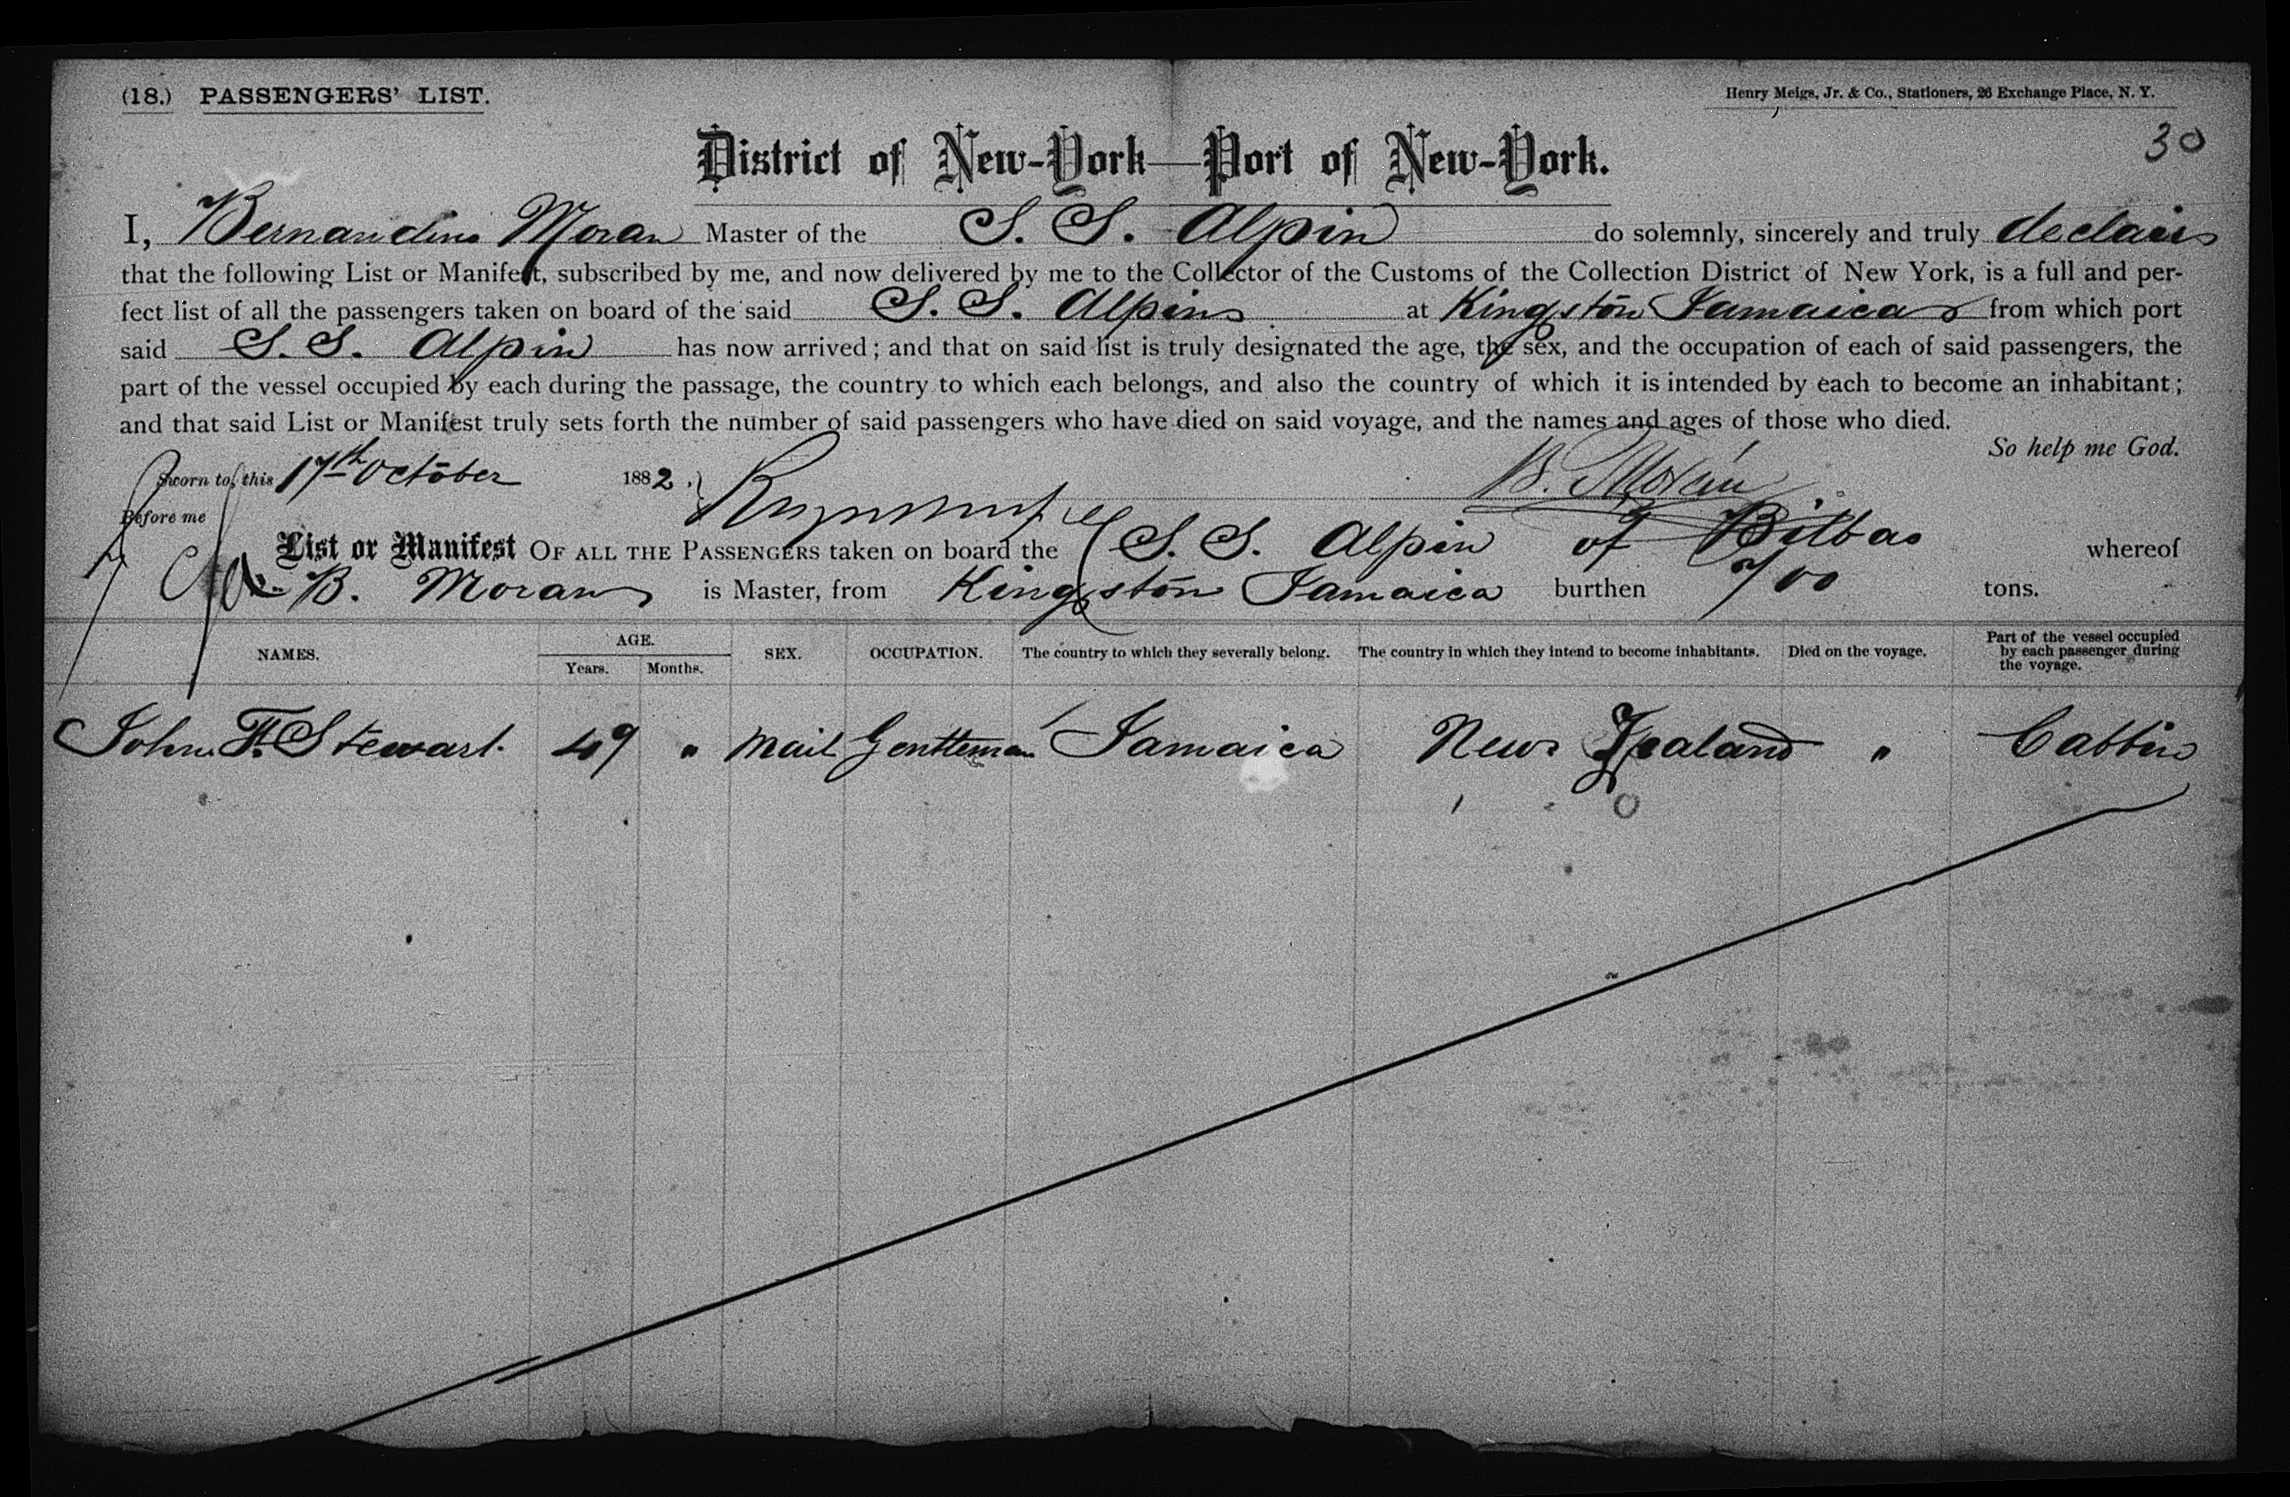 (18.) PASSENGERS' LIST.
Henry Meigs, Jr. & Co., Stationers, 26 Exchange Place, N. Y.
30
District of New-York—Port of New-York.
I, Bernardino Moran Master of the S. S. Alpin do solemnly, sincerely and truly declair
that the following List or Manifest, subscribed by me, and now delivered by me to the Collector of the Customs of the Collection District of New York, is a full and per-
fect list of all the passengers taken on board of the said S. S. Alpin at Kingston Jamaica from which port
said S. S. Alpin has now arrived; and that on said list is truly designated the age, the sex, and the occupation of each of said passengers, the
part of the vessel occupied by each during the passage, the country to which each belongs, and also the country of which it is intended by each to become an inhabitant;
and that said List or Manifest truly sets forth the number of said passengers who have died on said voyage, and the names and ages of those who died.
So help me God.
Sworn to, this 17th October 1882. B. Moran
Before me
List or Manifest OF ALL THE PASSENGERS taken on board the S. S. Alpin of Bilbao whereof
B. Moran is Master, from Kingston Jamaica burthen 700 tons.
NAMES. AGE. Years. Months. SEX. OCCUPATION. The country to which they severally belong. The country in which they intend to become inhabitants. Died on the voyage. Part of the vessel occupied by each passenger during the voyage.
John F. Stewart. 49 " Mail Gentleman Jamaica New Zealand " Cabbin